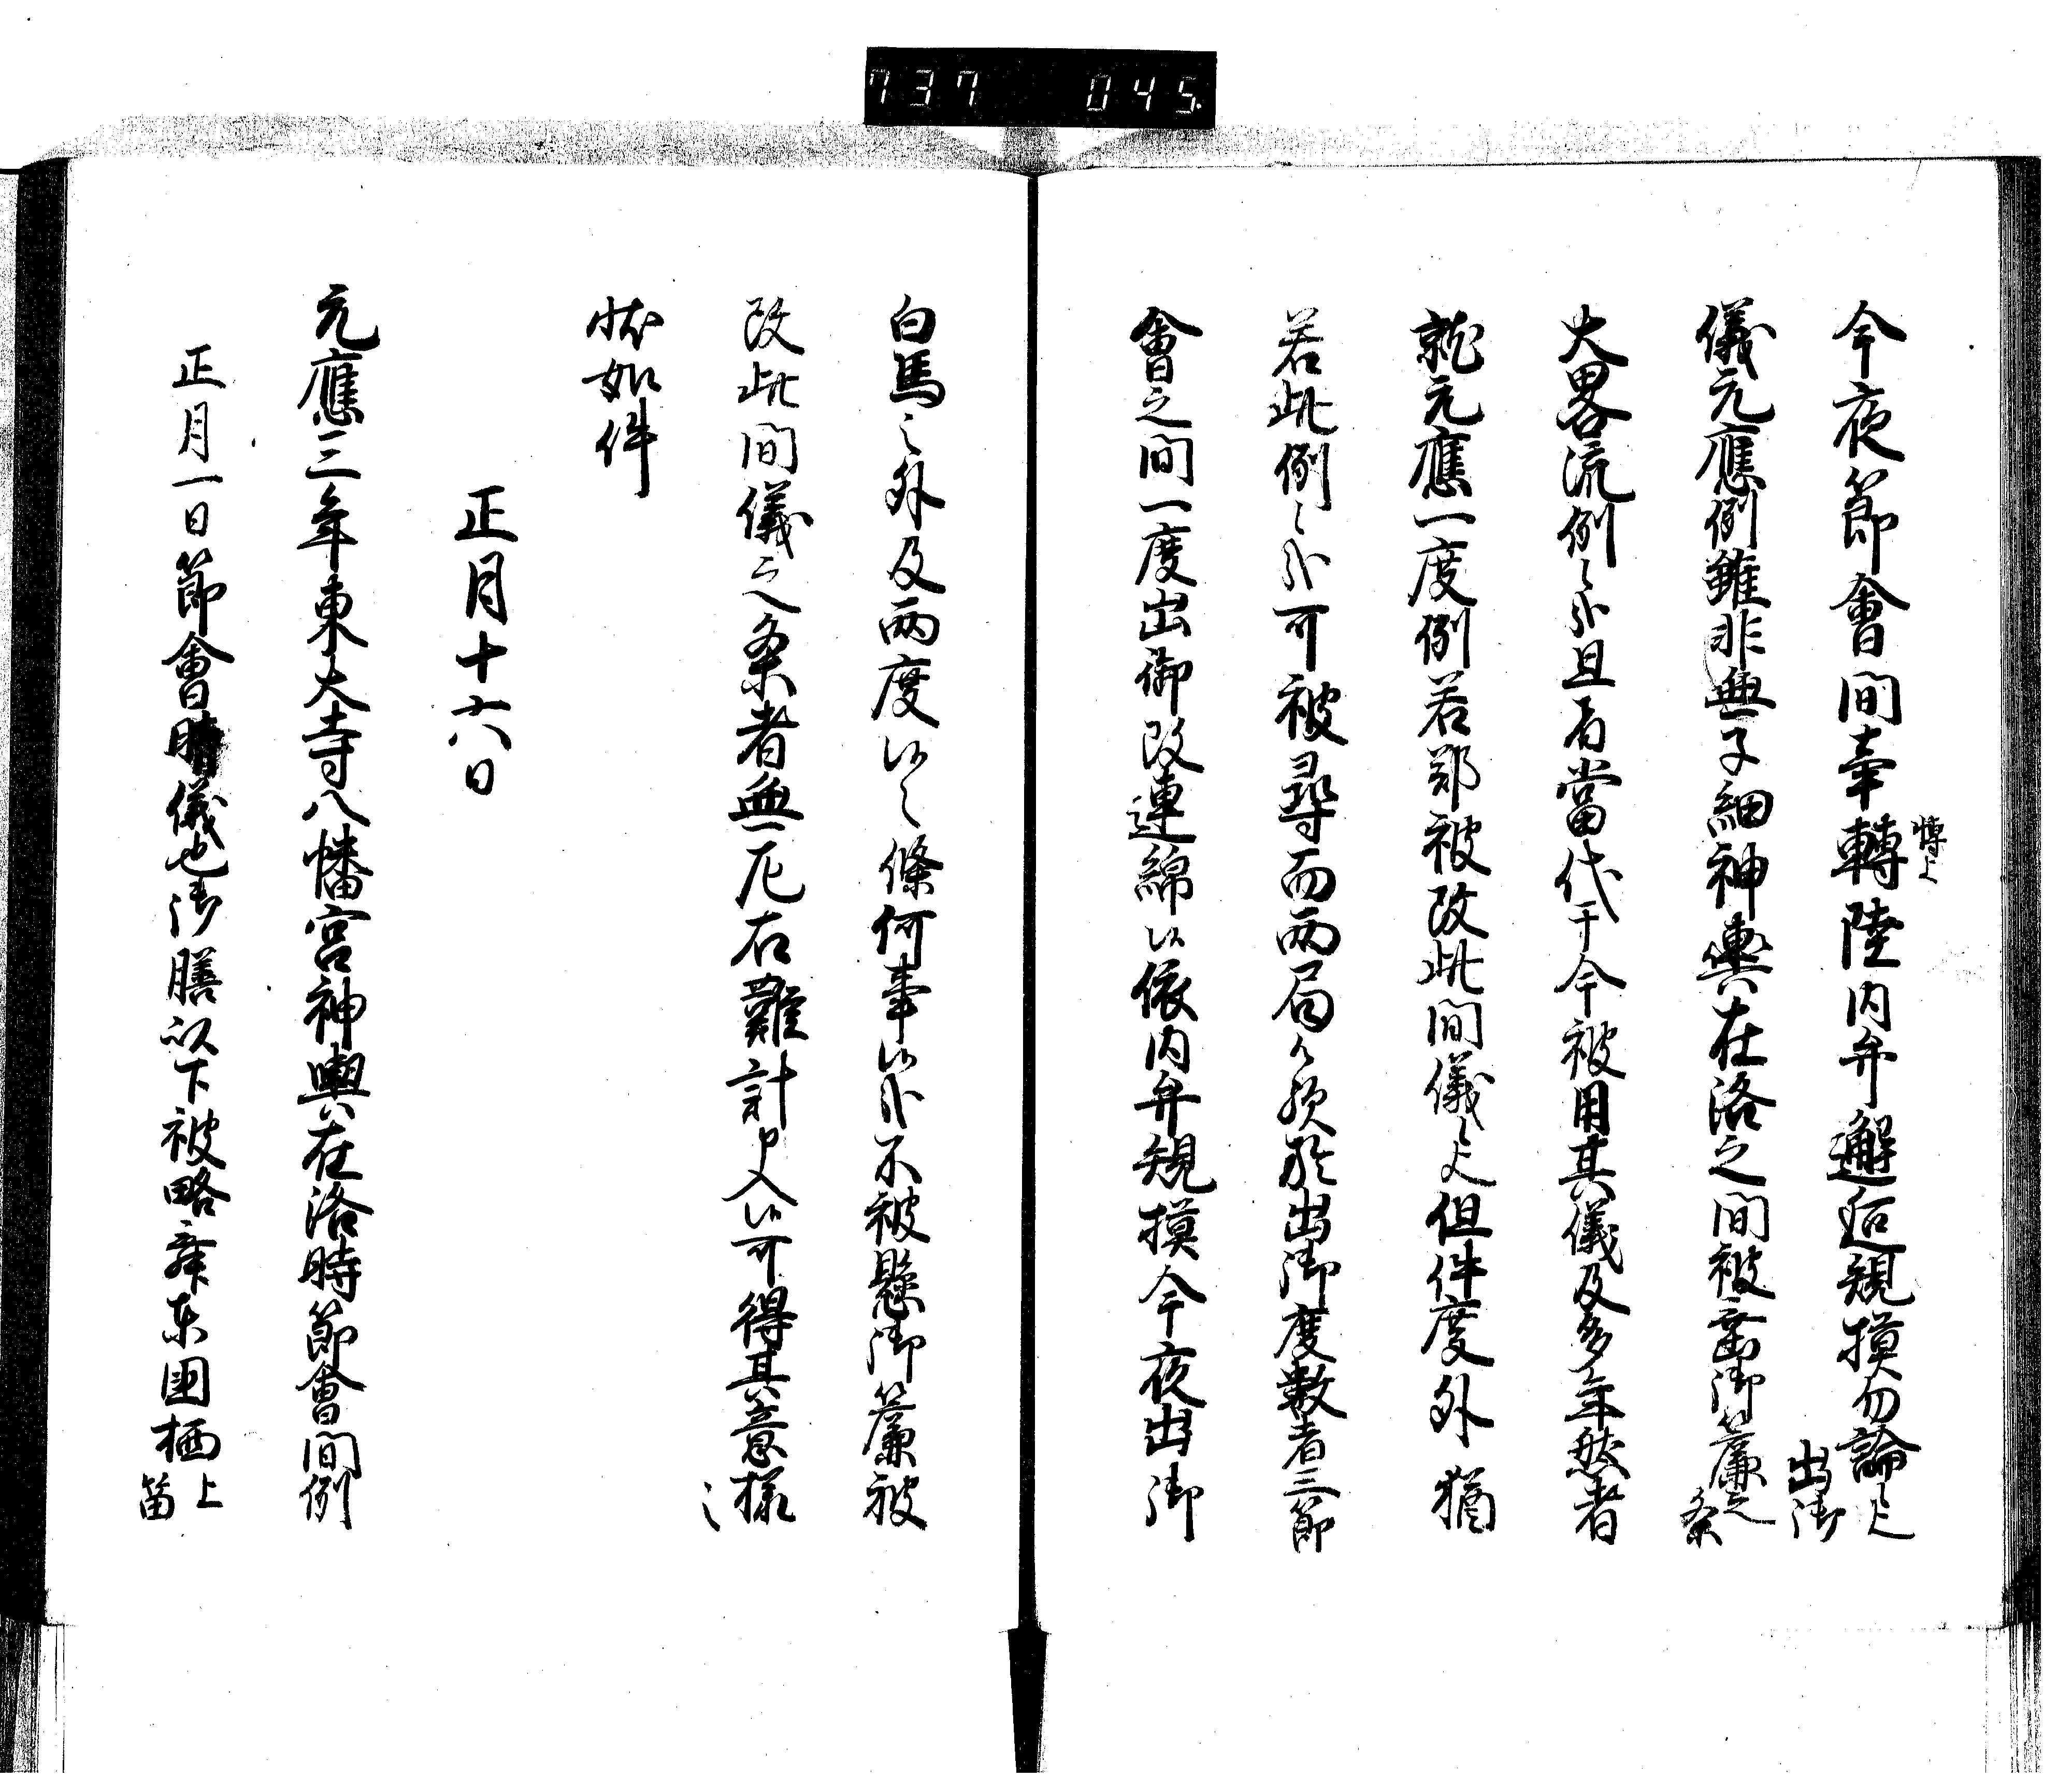 737 045
今夜節會間事轉陸内弁邂逅規摸勿論候
出御
儀元應例雖非無子細神輿在洛之間被垂御簾之条
大畧流例候歟且者當代于今被用其儀及多年然者
就元應一度例若都被改此間儀候但件度外猶
若此例候哉可被尋両局候於出御度數者三節
會之間一度出御改連綿候依内弁規摸今夜出御
白馬之外及兩度候之條何事候哉不被懸御簾被
改此間儀之条者無左右難計申入候可得其意様
状如件
正月十六日
元應三年東大寺八幡宮神輿在洛時節會間例
正月一日節會晴儀也御膳以下被略之國栖上
笛